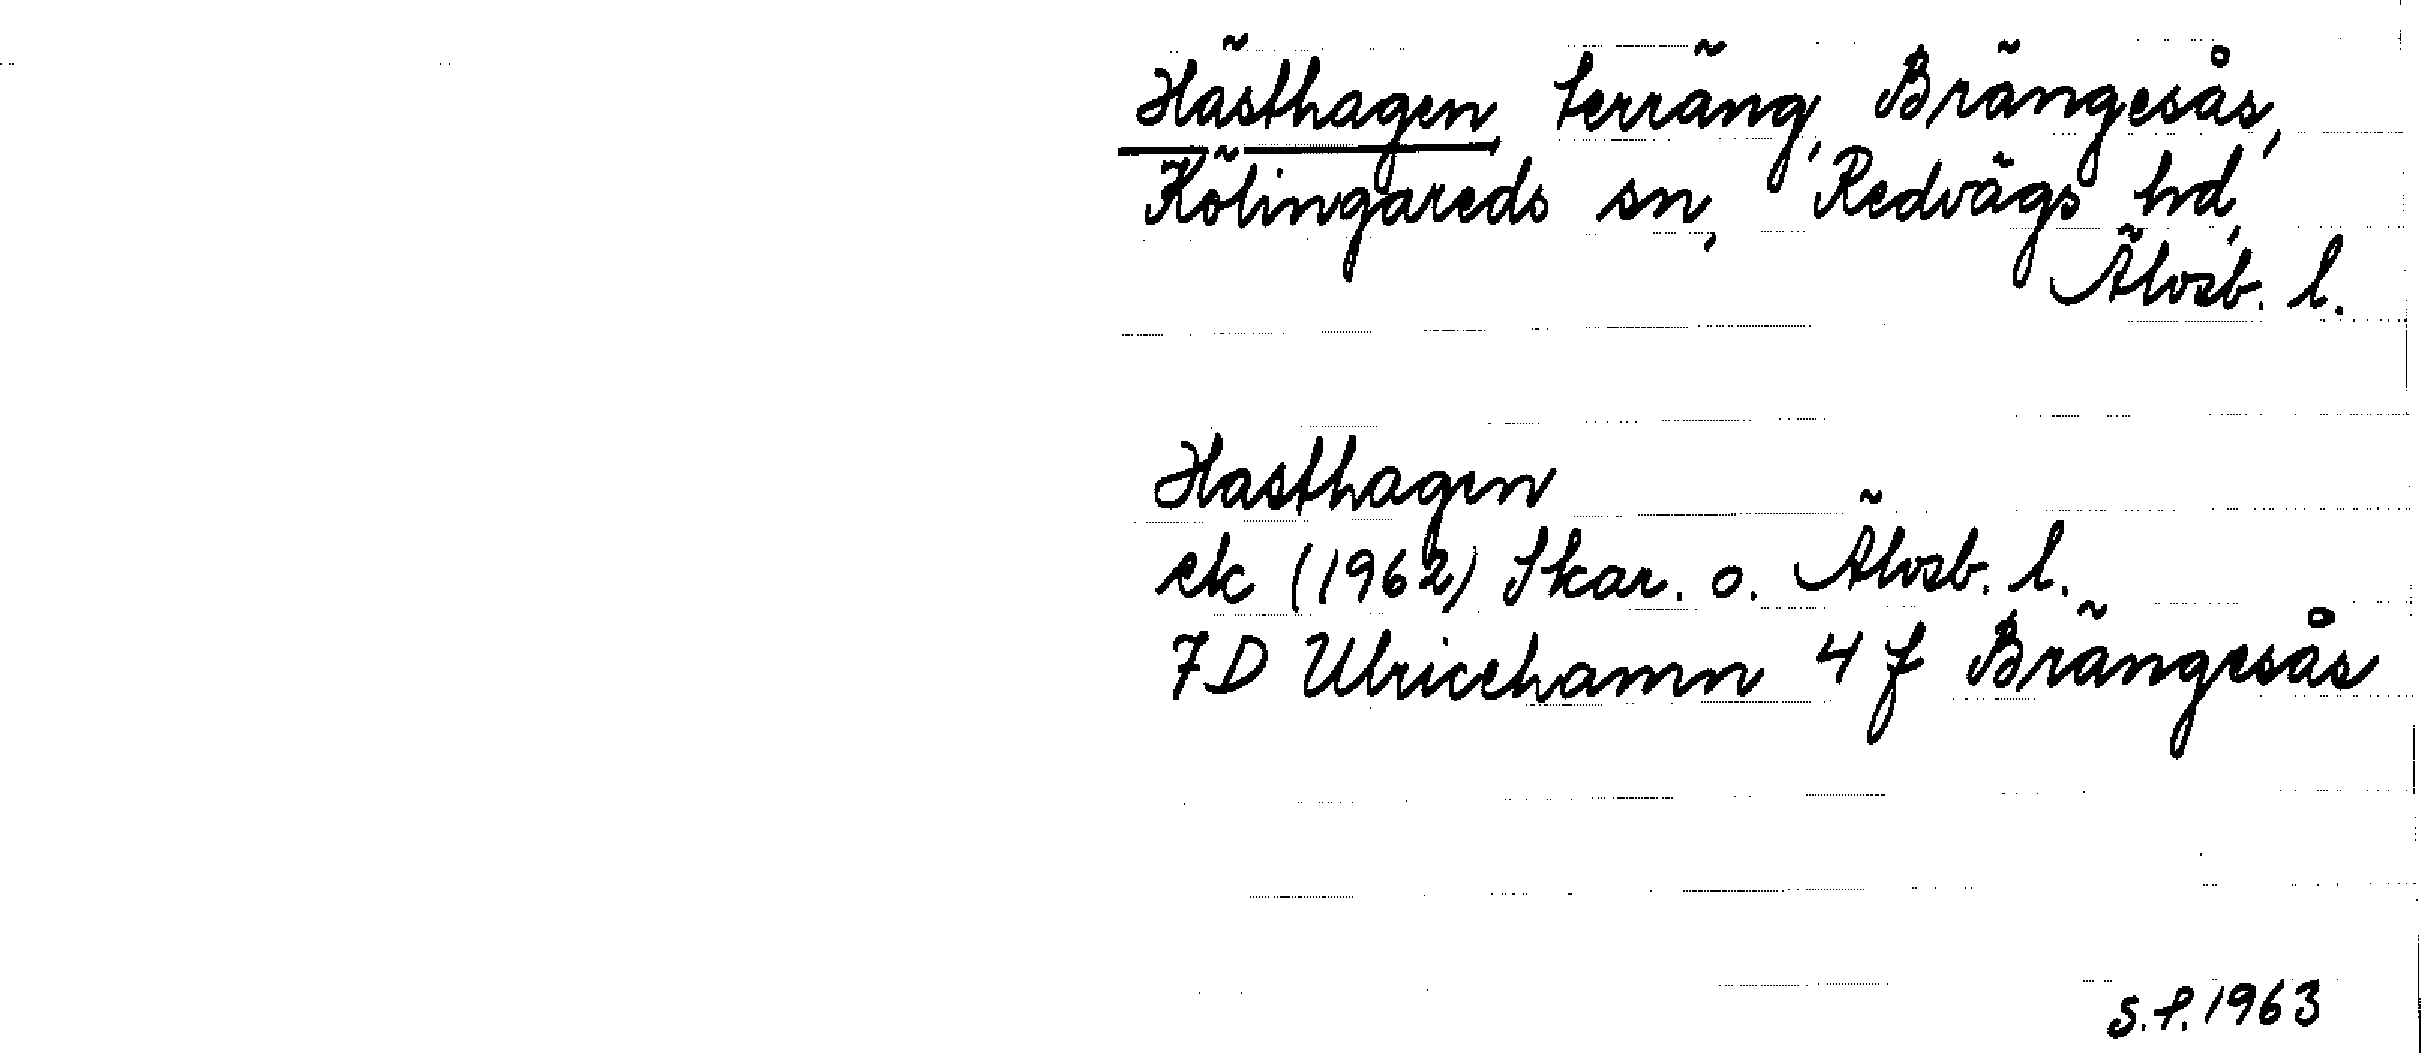 Hästhagen, terräng, Brängesås,
Kölingareds sn, Redvägs hd,
Älvsb. l.
Hasthagen
ek (1962) Skar. o. Älvsb. l.
7D Ulricehamn 4 f Brängesås
S.P. 1963